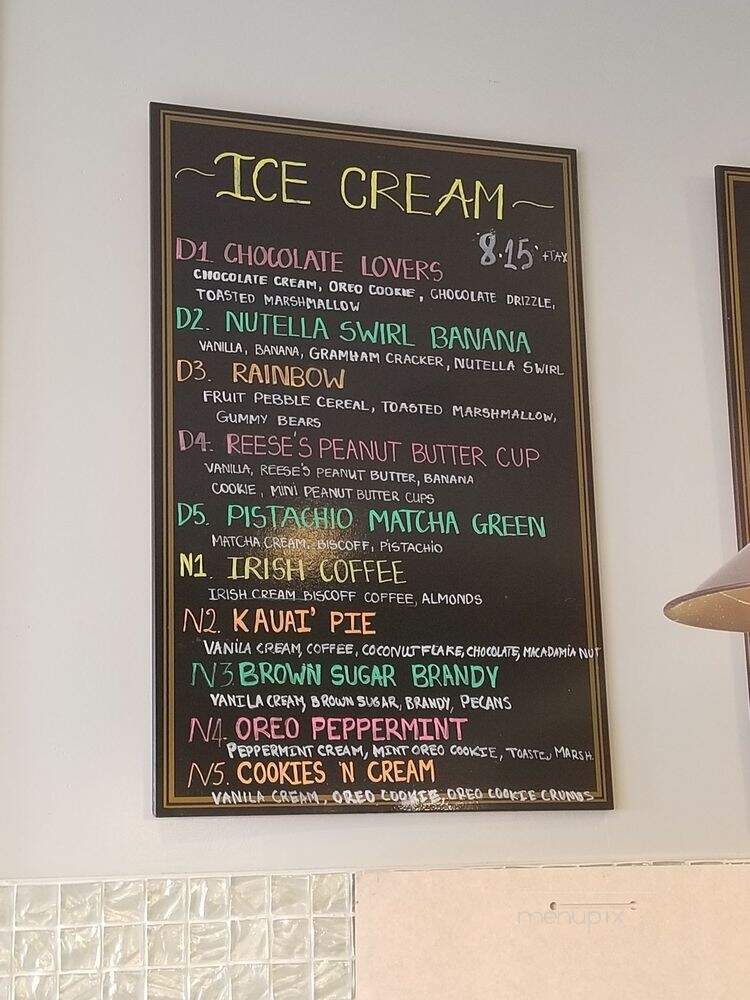 ~ICE CREAM~
8.15 +TAX
D1 CHOCOLATE LOVERS
CHOCOLATE CREAM, OREO COOKIE, CHOCOLATE DRIZZLE,
TOASTED MARSHMALLOW
D2. NUTELLA SWIRL BANANA
VANILLA, BANANA, GRAMHAM CRACKER, NUTELLA SWIRL
D3. RAINBOW
FRUIT PEBBLE CEREAL, TOASTED MARSHMALLOW,
GUMMY BEARS
D4. REESE'S PEANUT BUTTER CUP
VANILLA, REESE'S PEANUT BUTTER, BANANA
COOKIE, MINI PEANUT BUTTER CUPS
D5. PISTACHIO MATCHA GREEN
MATCHA CREAM, BISCOFF, PISTACHIO
N1. IRISH COFFEE
IRISH CREAM BISCOFF COFFEE, ALMONDS
N2. KAUAI' PIE
VANILA CREAM, COFFEE, COCONUT FLAKE, CHOCOLATE, MACADAMIA NUT
N3 BROWN SUGAR BRANDY
VANILA CREAM, BROWN SUGAR, BRANDY, PECANS
N4. OREO PEPPERMINT
PEPPERMINT CREAM, MINT OREO COOKIE, TOASTED MARSH.
N5. COOKIES 'N CREAM
VANILA CREAM, OREO COOKIE, OREO COOKIE CRUMBS
menupix